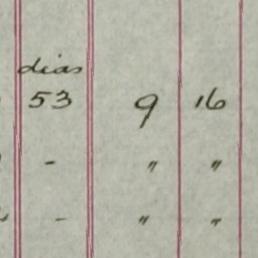 dias
53 9 16
- " "
- " "